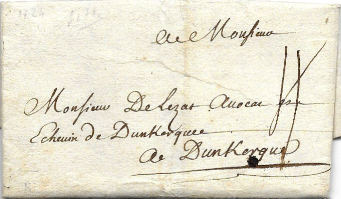 1724
ae Monsieur
Monsieur De Lezat Auocat
Echeuin de Dunkerque
Ae Dunkerque